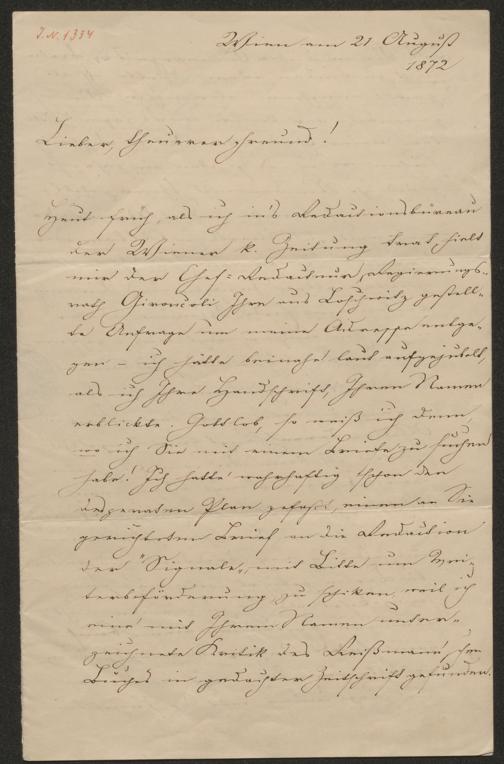 J.N. 1334
Wien am 21 August
1872
Lieber, theuerer Freund!
Heut früh, als ich in's Redactionsbureau
der Wiener k. Zeitung trat, hielt
mir der Chef-Redacteur, Regierungs-
rath Gironcoli Ihre aus Loschwitz gestell-
te Anfrage um meine Adresse entge-
gen – ich hätte beinahe laut aufgejubelt,
als ich Ihre Handschrift, Ihren Namen
erblickte. Gottlob, so weiß ich denn,
wo ich Sie mit einem Briefe zu suchen
habe! Ich hatte wahrhaftig schon den
desperaten Plan gefaßt, einen an Sie
gerichteten Brief an die Redaction
der "Signale" mit Bitte um Wei-
terbeförderung zu schicken, weil ich
eine mit Ihrem Namen unter-
zeichnete Kritik des Reißmann'schen
Buches in gedachter Zeitschrift gefunden.